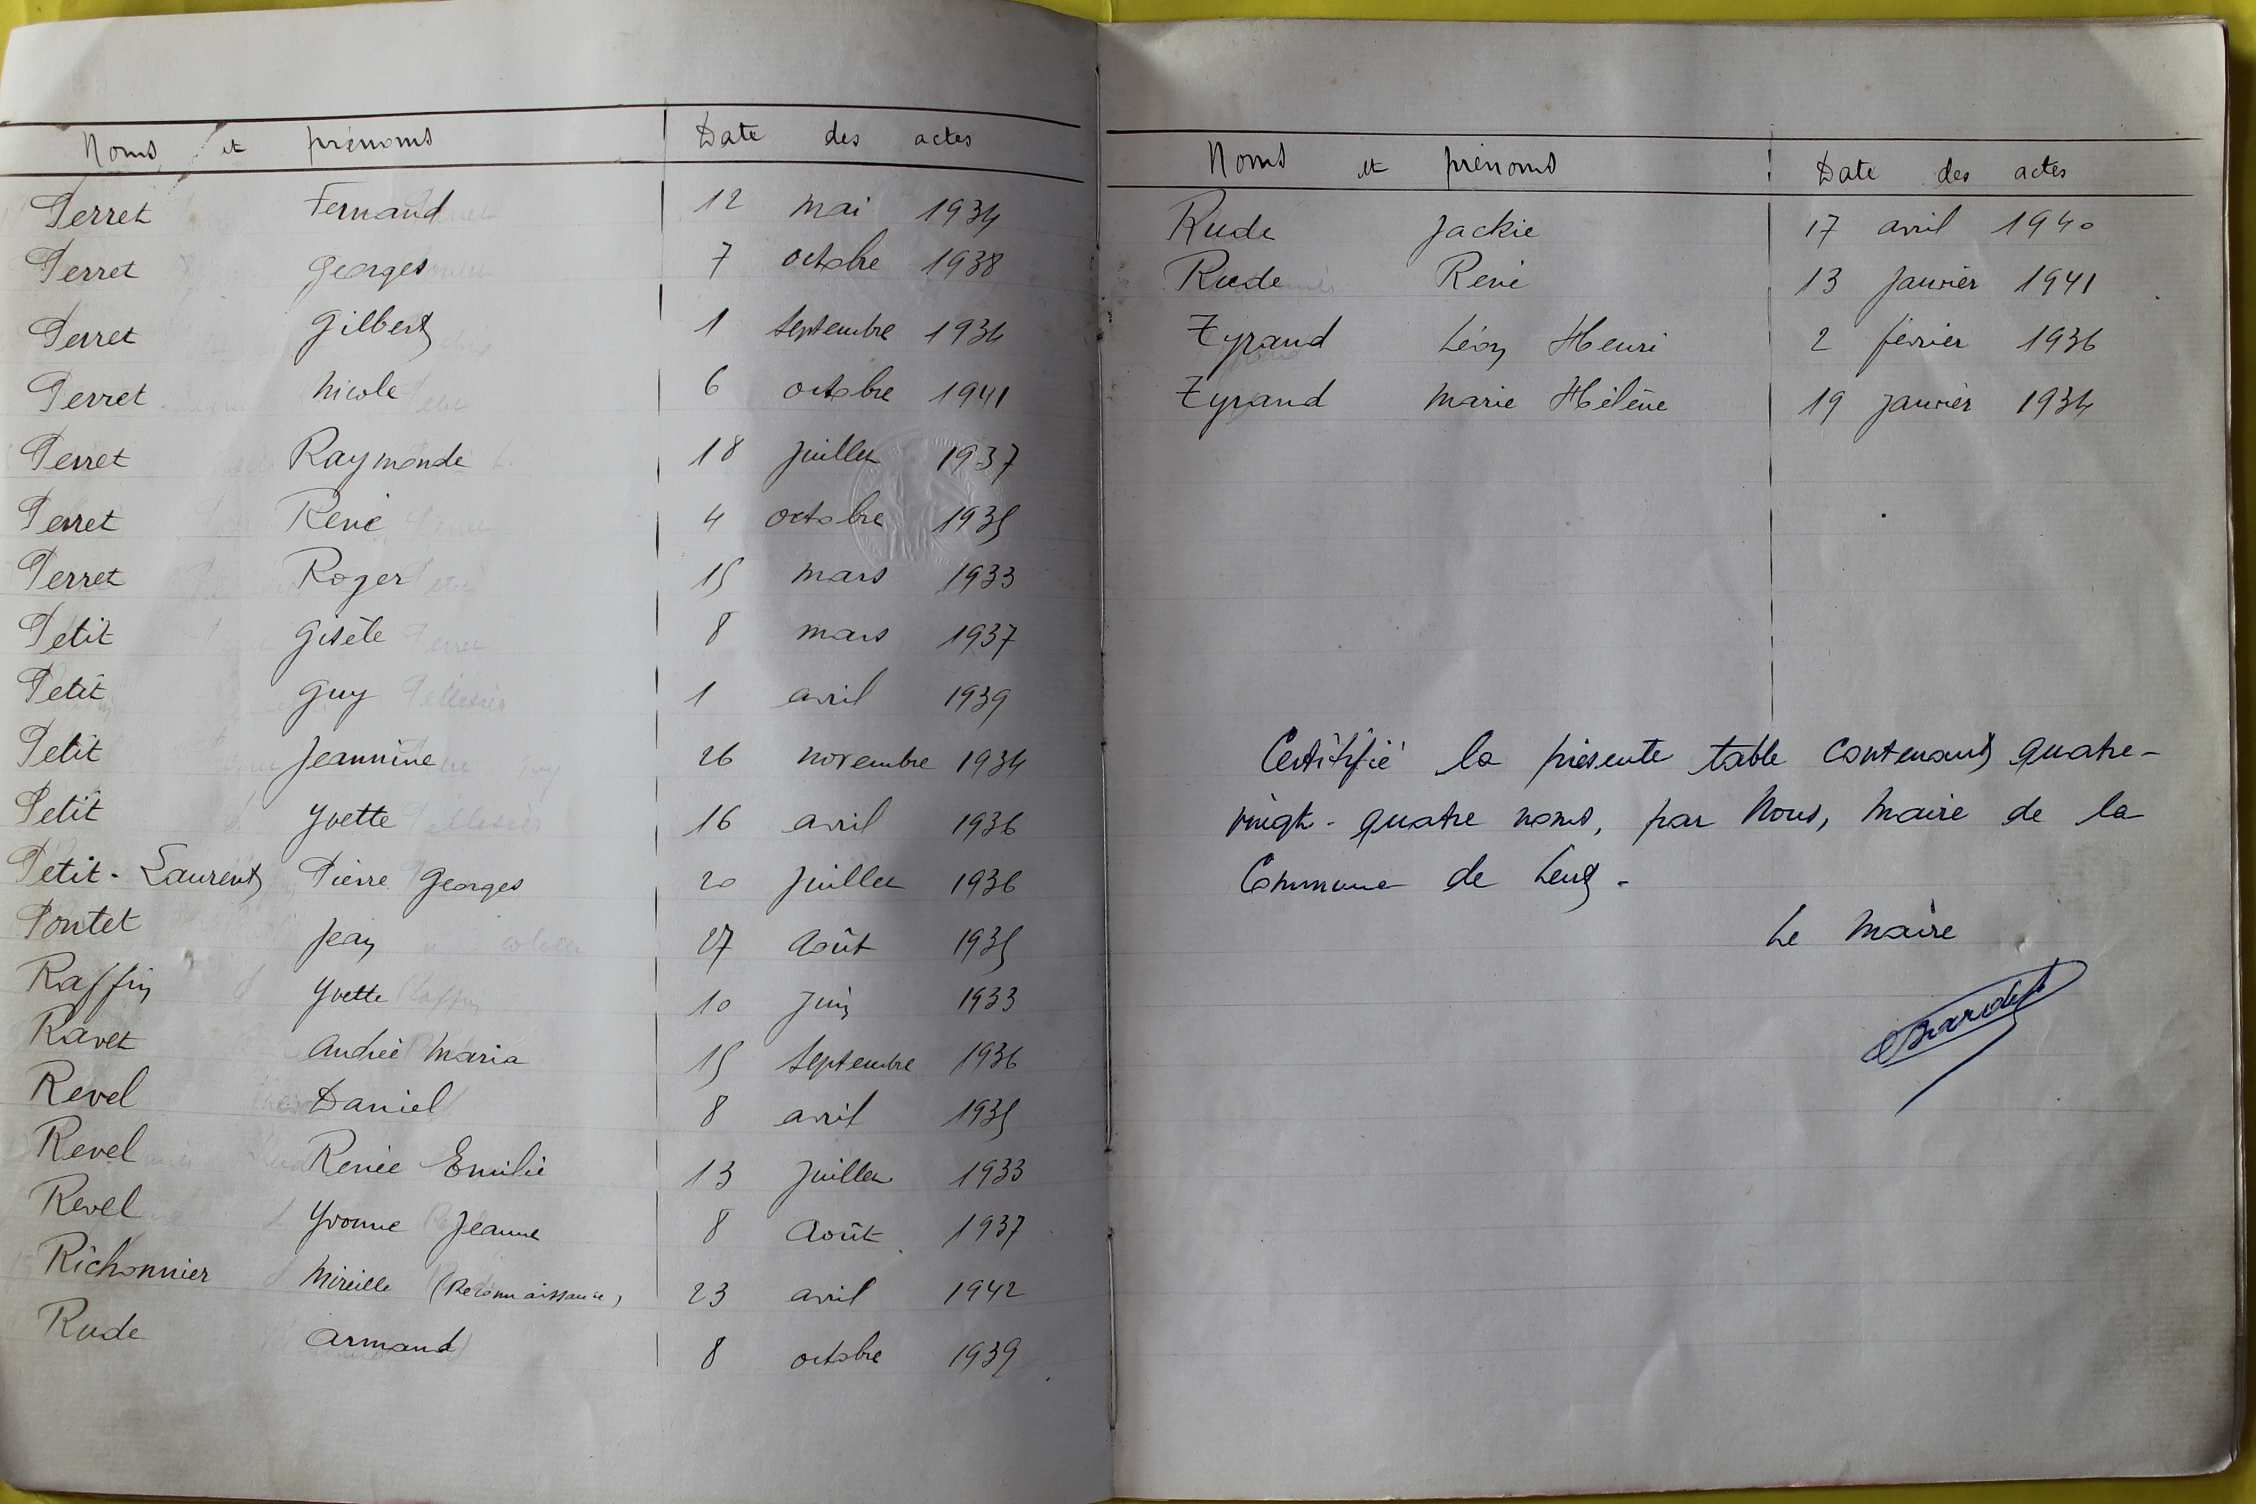 Noms et prénoms Date des actes
Perret Fernand 12 mai 1934
Perret Georges 7 octobre 1938
Perret Gilbert 1 septembre 1934
Perret Nicole 6 octobre 1941
Perret Raymonde 18 juillet 1937
Perret René 4 octobre 1935
Perret Roger 15 mars 1933
Petit Gisèle 8 mars 1937
Petit Guy 1 avril 1939
Petit Jeannine 26 novembre 1934
Petit Yvette 16 avril 1936
Petit-Laurent Pierre Georges 20 juillet 1936
Pontet Jean 27 Août 1935
Raffin Yvette 10 juin 1933
Ravet Andrée Maria 15 septembre 1936
Revel Daniel 8 avril 1935
Revel Renée Emilie 13 juillet 1933
Revel Yvonne Jeanne 8 Août 1937
Richonnier Mireille (Reconnaissance) 23 avril 1942
Rude Armand 8 octobre 1939
Noms et prénoms Date des actes
Rude Jackie 17 avril 1940
Rude René 13 janvier 1941
Tyrand Léon Henri 2 février 1936
Tyrand Marie Hélène 19 janvier 1934
Certifié la présente table contenant quatre-
vingt-quatre noms, par Nous, Maire de la
Commune de
Le Maire